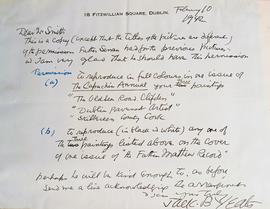 18 FITZWILLIAM SQUARE, DUBLIN.
February 10
1942
Dear Mr Smith
This is a Copy (except that the titles of the pictures are different)
of the permission Father Senan had for the previous Pictures
I am very glad that he should have the permission
Permission
(a) to reproduce in full Colours, in one issue of
The Capuchin Annual your three
"The Clebber Road, Clifden"
"Dublin Pavement Artist"
"Skibbereen County Cork"
(b) to reproduce (in black & white) any one of
the three paintings listed above on the cover
of one issue of "The Father Mathew Record"
perhaps he will be kind enough to, as before
send me a line acknowledging the arrangement
Yours
Jack B Yeats